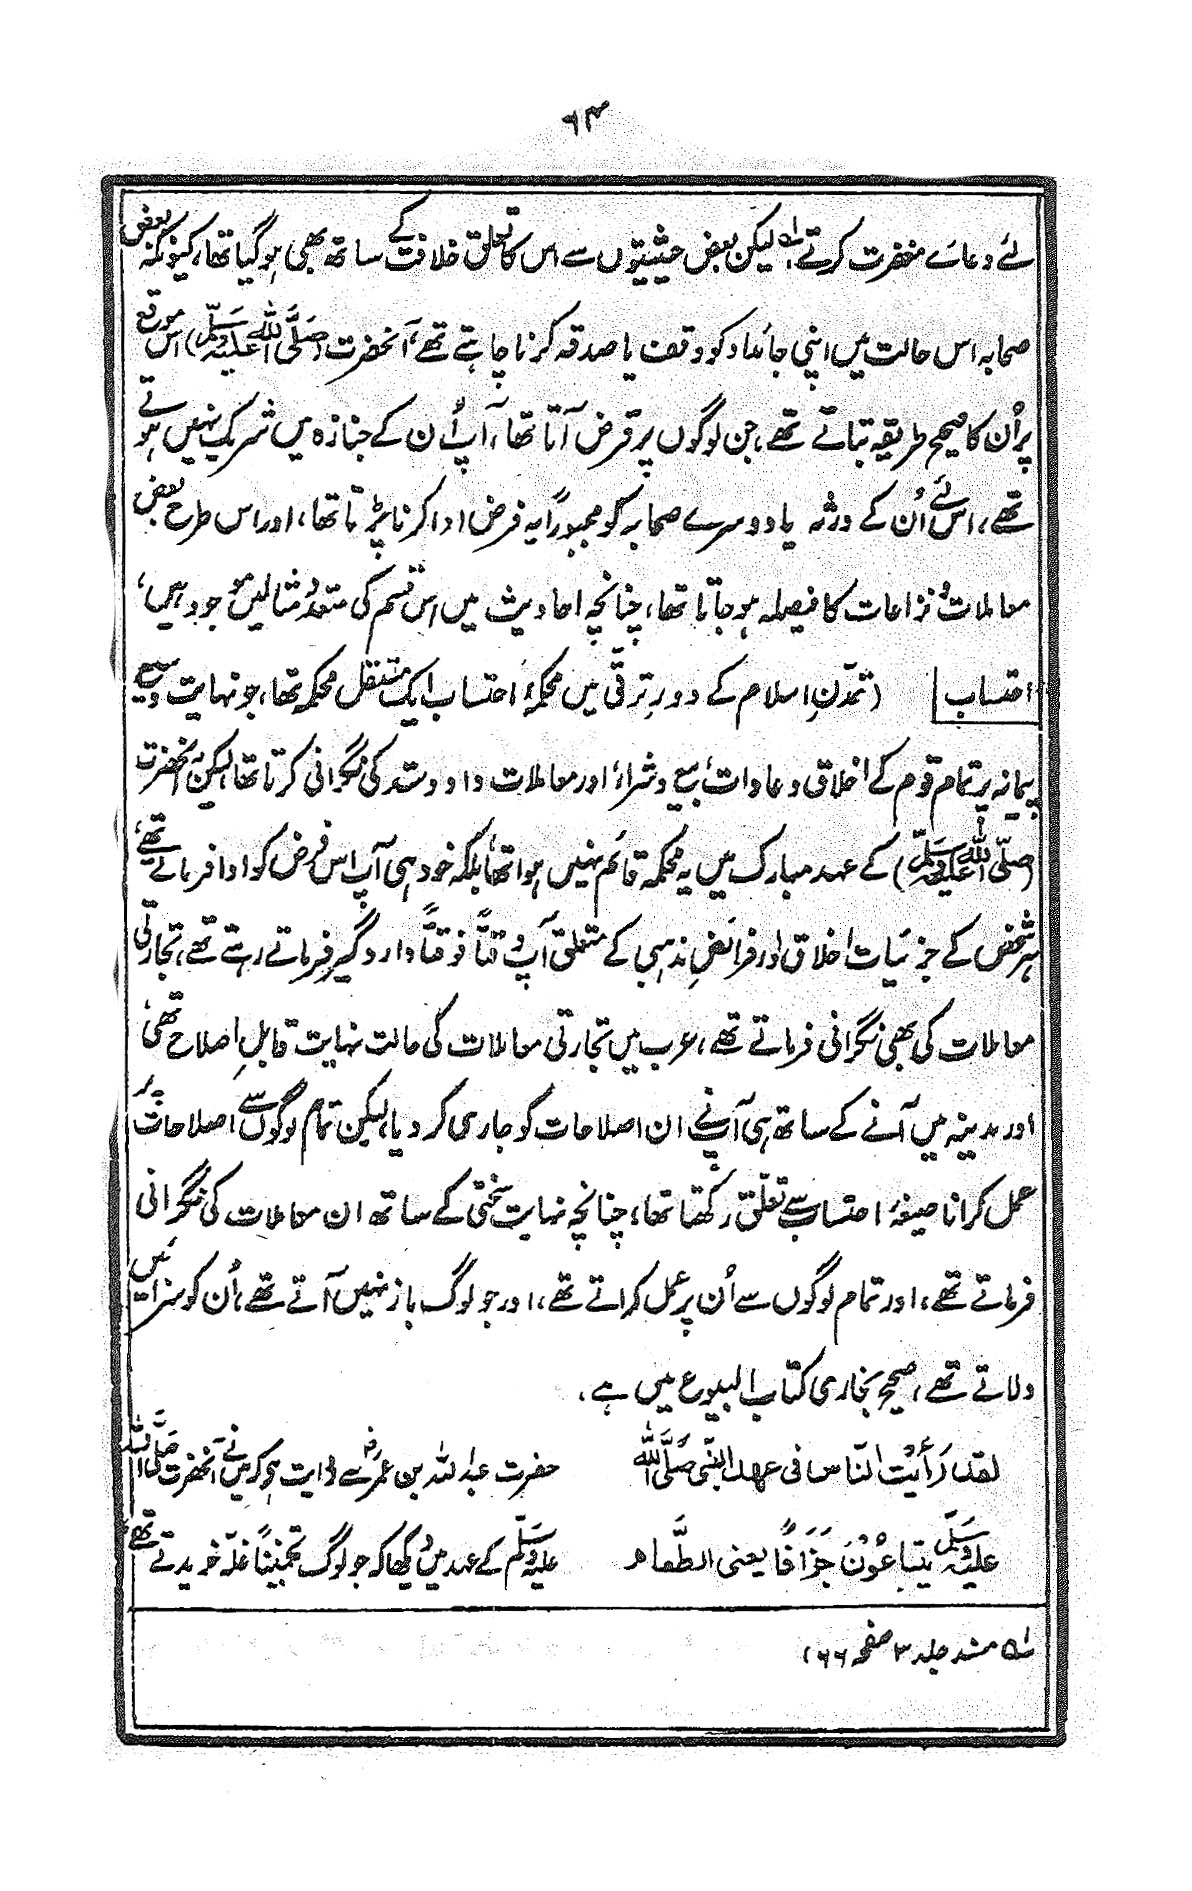 ۶۴
لئے دعاے مغفرت کرتے، لیکن بعض حیثیتوں سے اس کا تعلق خلافت کے ساتھ بھی ہو گیا تھا، کیونکہ بعض
صحابہ اس حالت میں اپنی جائداد کو وقف یا صدقہ کرنا چاہتے تھے، آنحضرت (صَلَّی اللہ عَلَیْہِ وَسَلَّم) اس موقع
پر اُن کا صحیح طریقہ بتاتے تھے، جن لوگوں پر قرض آتا تھا، آپ اُن کے جنازہ میں شریک نہیں ہوتے
تھے، اس لئے اُن کے ورثہ یا دوسرے صحابہ کو مجبوراً یہ قرض ادا کرنا پڑتا تھا، اور اس طرح بعض
معاملات و نزاعات کا فیصلہ ہو جاتا تھا، چنانچہ احادیث میں اس قسم کی متعدد مثالیں موجود ہیں،
احتساب (تمدّنِ اسلام کے دورِ ترقی میں محکمۂ احتساب ایک مستقل محکمہ تھا، جو نہایت وسیع
پیمانہ پر تمام قوم کے اخلاق و عادات، بیع و شراء، اور معاملات داد و ستد کی نگرانی کرتا تھا، لیکن آنحضرت
(صلّی اللہ عَلَیْہِ وَسَلَّم) کے عہد مبارک میں یہ محکمہ قائم نہیں ہوا تھا، بلکہ خود ہی آپ اس فرض کو ادا فرماتے تھے،
ہر شخص کے جزئیات اخلاق اور فرائض مذہبی کے متعلق آپ وقتاً فوقتاً دار و گیر فرماتے رہتے تھے، تجارتی
معاملات کی بھی نگرانی فرماتے تھے، عرب میں تجارتی معاملات کی حالت نہایت قابلِ اصلاح تھی،
اور مدینہ میں آنے کے ساتھ ہی آپ نے ان اصلاحات کو جاری کر دیا، لیکن تمام لوگوں سے اصلاحات پر
عمل کرانا صیغۂ احتساب سے تعلّق رکھتا تھا، چنانچہ نہایت سختی کے ساتھ ان معاملات کی نگرانی
فرماتے تھے، اور تمام لوگوں سے اُن پر عمل کراتے تھے، اور جو لوگ باز نہیں آتے تھے، اُن کو سزائیں
دلاتے تھے، صحیح بخاری کتاب البیوع میں ہے،
لقد رَأَیْتُ النّاس فی عھد النبّی صَلَّی اللہ
عَلَیْہِ وَسَلَّم یتباعُوْنَ جَزَافًا یعنی الطَّعام
حضرت عبد اللہ بن عمرؓ سے روایت ہو کہ میں نے آنحضرت صَلَّی اللہ
عَلَیْہِ وَسَلَّم کے عہد میں دیکھا کہ جو لوگ تخمیناً غلّہ خریدتے تھے
لہ مسند جلد ۳ صفحہ ۶۶،